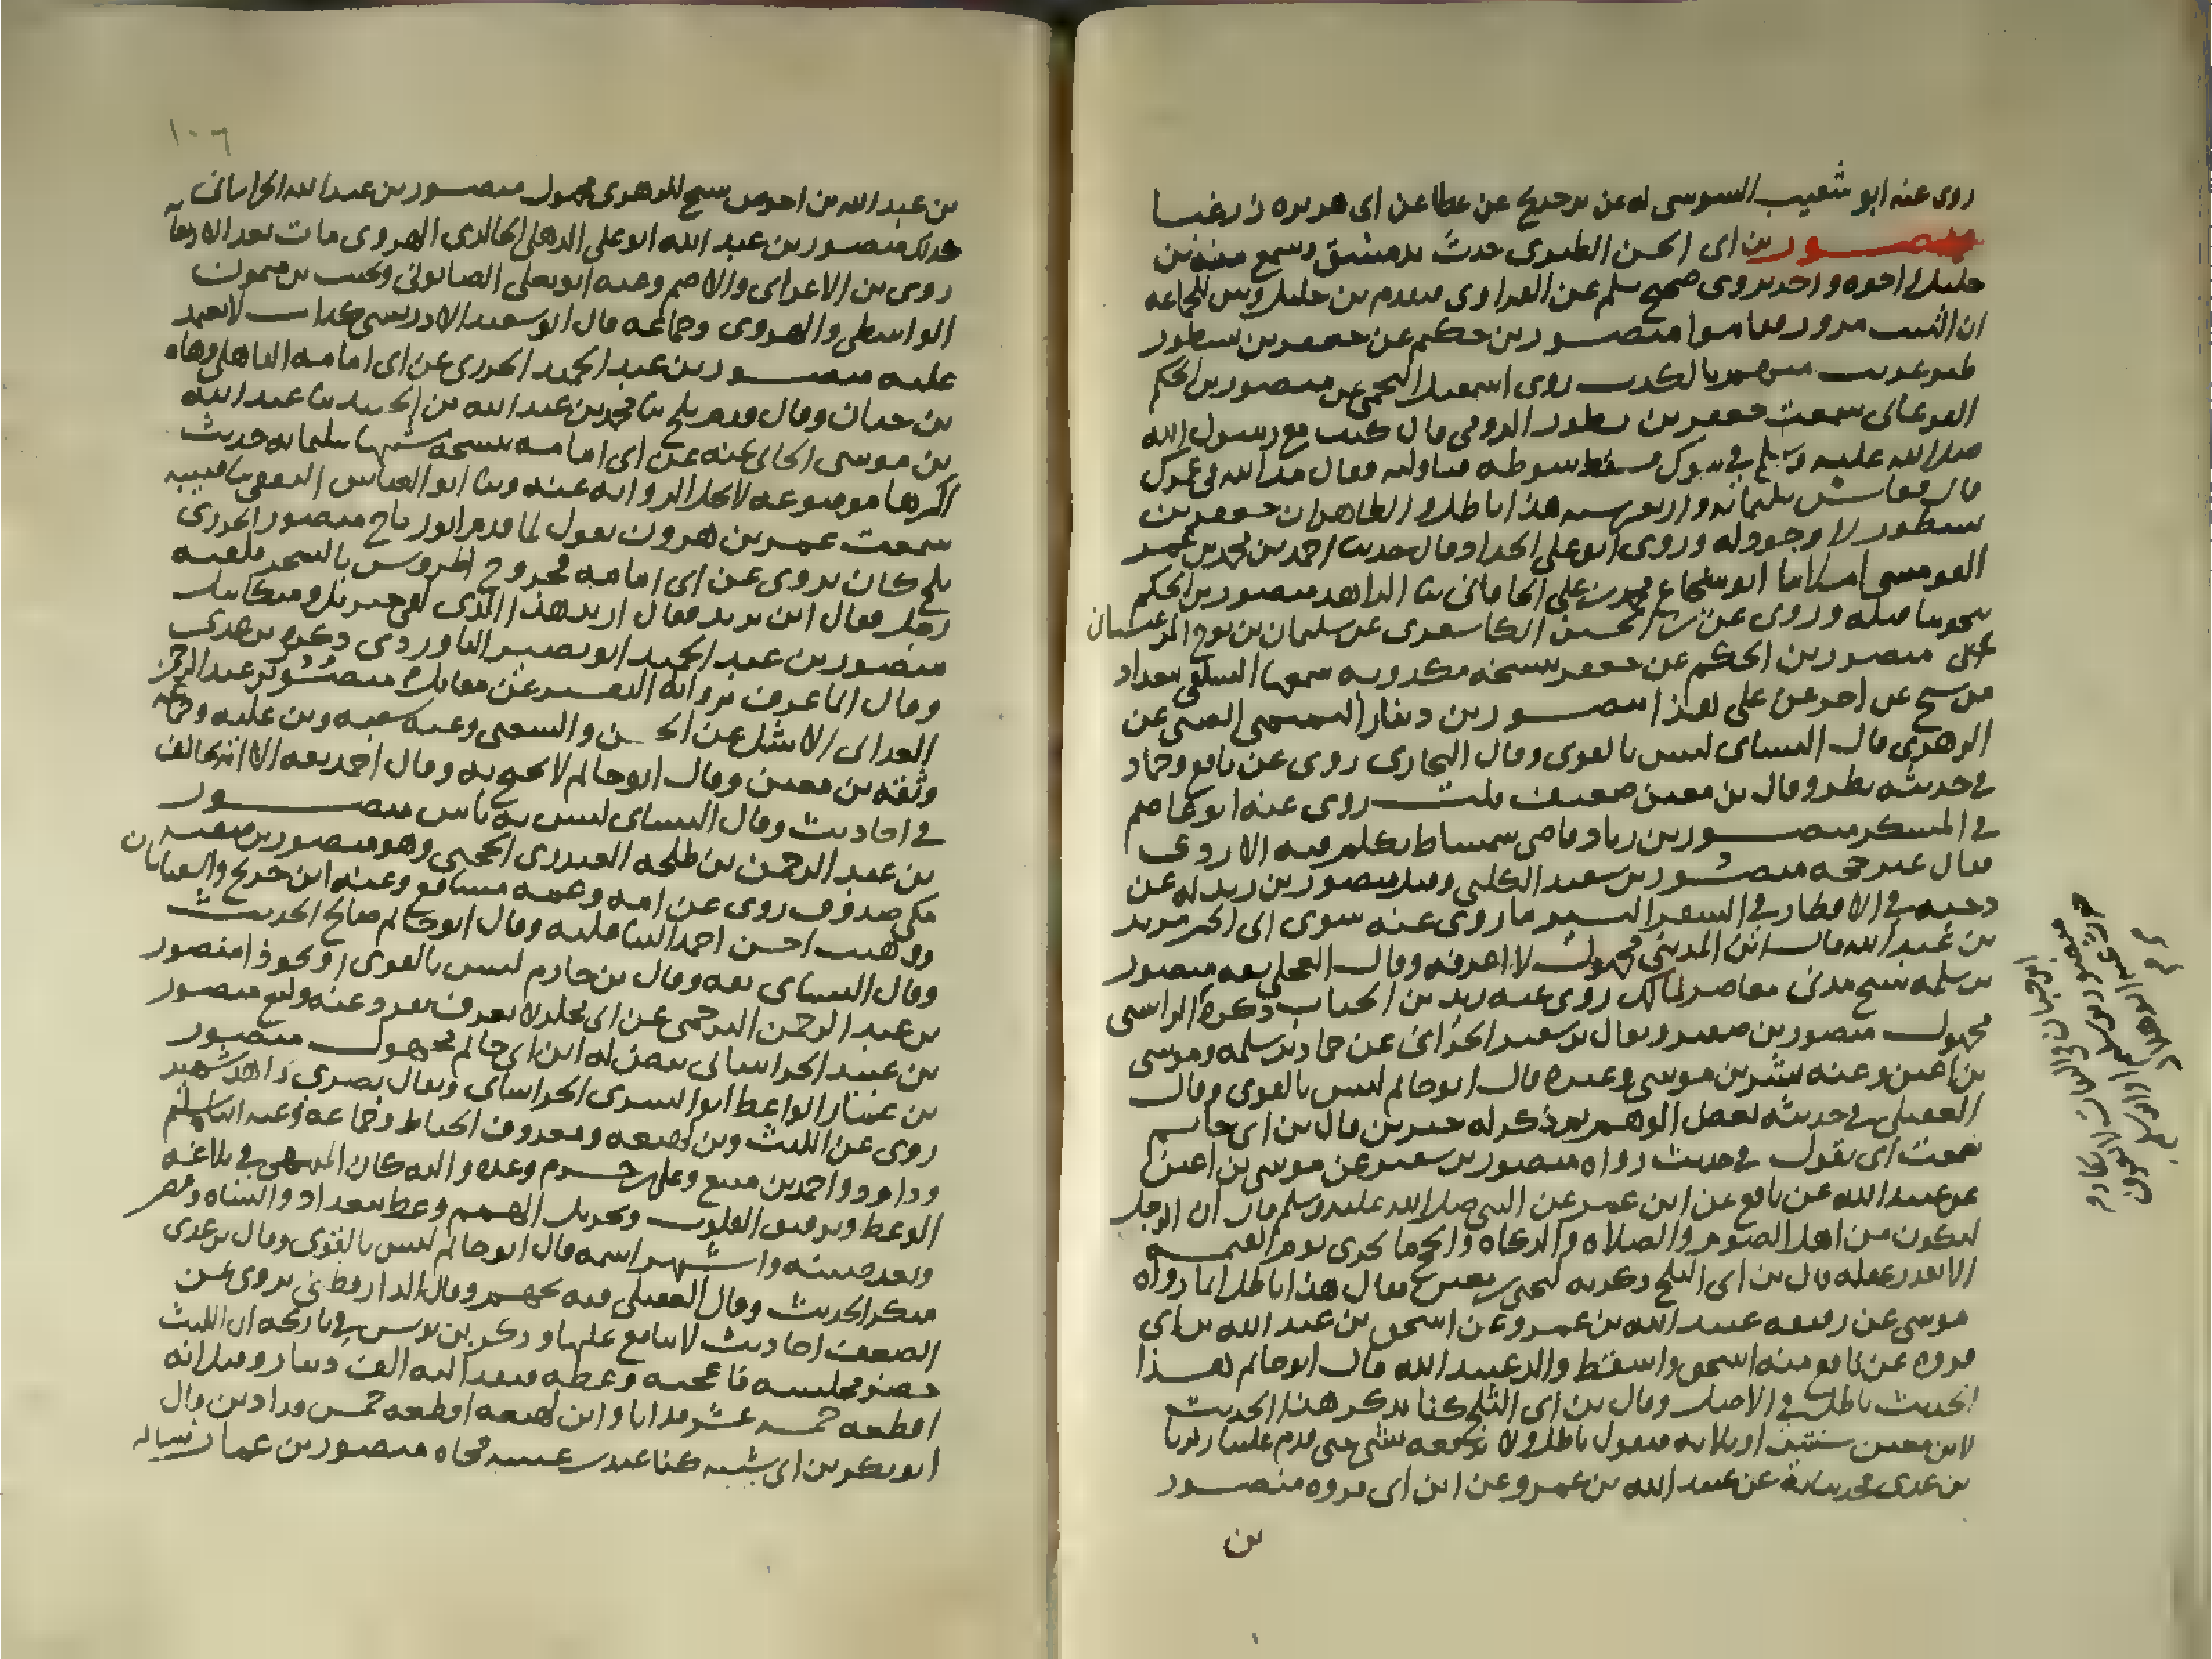 روى عنه ابو شعيب السوسي له عن بن جريج عن عطا عن ابي هريره زر غبا
منصور بن ابي الحسن الطبري حدث بدمشق وسمع منه بن
خليل واخوه واحد يروى صحيح مسلم عن الفراوي فيقدم بن خليل وبين للجماعه
ان الثبت مزور فقاموا منصور بن حكم عن جعفر بن نسطور
طير غريب متهم بالكذب روى اسمعيل النجمي عن منصور بن الحكم
الفرغاني سمعت جعفر بن نسطور الرومي قال كنت مع رسول الله
صلى الله عليه وسلم في تبوك فسقط سوطه فناولته فقال مد الله في عمرك
قال فعاش ثلثمائه واربعين سنه هذا باطل والظاهر ان جعفر بن
نسطور لا وجود له وروى ابو علي الحداد قال حدثنا احمد بن محمد بن عمر
القومسي املا انا ابو شجاع محمد بن علي الخاقاني ثنا الزاهد منصور بن الحكم
بنحو ما قبله وروى عن الحسين الكاشغري عن سليمان بن نوح المرغيناني
عن منصور بن الحكم عن جعفر نسخه مكذوبه سمعها السلفي ببغداد
من شيخ عن اخر عن علي هذا منصور بن دينار التميمي الضبي عن
الزهري قال النسائي ليس بالقوي وقال البخاري روى عن نافع وحماد
في حديثه نظر وقال بن معين ضعيف قلت روى عنه ابو عاصم
في المسكر منصور بن زياد قاضي شمشاط تكلم فيه الازدي
فقال غير حجه منصور بن سعيد الكلبي وقيل منصور بن زيد له عن
دحيه في الافطار في السفر اليسير ما روى عنه سوى ابي الخير مرثد
بن عبد الله قال ابن المديني مجهول لا اعرفه وقال العجلي ثقه منصور
بن سلمه شيخ مدني معاصر لمالك روى عنه زيد بن الحباب ذكره الراسبي
مجهول منصور بن صقير ويقال بن سقير الحراني عن حماد بن سلمه وموسى
بن اعين وعنه بشر بن موسى وغيره قال ابو حاتم ليس بالقوي وقال
العقيلي في حديثه بعض الوهم ثم ذكر له خبرين قال بن ابي حاتم
سمعت ابي يقول في حديث رواه منصور بن سقير عن موسى بن اعين
عن عبيد الله عن نافع عن ابن عمر عن النبي صلى الله عليه وسلم قال ان الرجل
ليكون من اهل الصوم والصلاه والزكاه والحج ما يجزى يوم القيمه
الا بقدر عقله قال بن ابي الثلج ذكرته ليحيى بن معين فقال هذا باطل انما رواه
موسى عن رفيعه عبيد الله بن عمرو عن اسحق بن عبد الله بن ابي
فروه عن نافع منه اسحق واسقط والد عبيد الله قال ابو حاتم هذا
الحديث باطل في الاصل وقال بن ابي الثلج كنا نذكر هذا الحديث
لابن معين سنتين او ثلاثه فيقول باطل ولا ندفعه بشي حتى قدم علينا زكريا
بن عدي فحدثنا به عن عبيد الله بن عمرو عن ابن ابي فروه منصور
بن
١٠٦
بن عبد الله بن احوص شيخ للزهري مجهول منصور بن عبد الله الخراساني
كذلك منصور بن عبد الله ابو علي الذهلي الخالدي الهروي مات بعد الاربعمائه
روى بن الاعرابي والاصم وعنه ابو يعلى الصابوني ونجيب بن ميمون
الواسطي والهروي وجماعه قال ابو سعيد الادريسي كذاب لا يعتمد
عليه منصور بن عبد الحميد الجزري عن ابي امامه الباهلي وهاه
بن حبان وقال قدم بلخ ثنا محمد بن عبد الله بن الجنيد ثنا عبد الله
بن موسى الخاني عنه عن ابي امامه بنسخه شبيها بثلثمائه حديث
اكثرها موضوعه لا تحل الروايه عنه وثنا ابو العباس الثقفي ثنا قتيبه
سمعت عمر بن هرون يقول لما قدم ابو رباح منصور الجزري
بلخ كان يروى عن ابي امامه فخروج اطروس بالسحر فلقيه
رجل فقال اين تريد فقال اريد هذا الذي لقي جبريل وميكائيل
منصور بن عبد الحميد ابو نصير الباوردي ذكره بن عدي
وقال انما عرف بروايه التفسير عن مقاتل منصور بن عبد الرحمن
الغداني الاشل عن الحسن والشعبي وعنه شعبه وبن عليه وجماعه
وثقه بن معين وقال ابو حاتم لا يحتج به وقال احمد ثقه الا انه يخالف
في احاديث وقال النسائي ليس به باس منصور
بن عبد الرحمن بن طلحه العبدري الحجبي وهو منصور بن صفيه
مكي صدوق روى عن امه وعمه مسافع وعنه ابن جريج والسفيانان
ووهيب احسن احمد الثنا عليه وقال ابو حاتم صالح الحديث
وقال النسائي ثقه وقال بن حازم ليس بالقوي او نحو ذا منصور
بن عبد الرحمن البرجمي عن ابي مجلز لا يعرف تفرد عنه وكيع منصور
بن عبيد الخراساني بيض له ابن ابي حاتم مجهول منصور
بن عمار الواعظ ابو السري الخراساني ويقال بصري زاهد شهير
روى عن الليث وبن لهيعه ومعروف الخياط وجماعه وعنه ابناه سليم
وداوود واحمد بن منيع وعلي بن خشرم وعده واليه كان المنتهى في بلاغه
الوعظ وترقيق القلوب وتحريك الهمم وعظ ببغداد والشام ومصر
وبعد صيته واشتهر اسمه قال ابو حاتم ليس بالقوي وقال بن عدي
منكر الحديث وقال العقيلي فيه تجهم وقال الدارقطني يروى عن
الضعفا احاديث لا يتابع عليها وذكر بن يونس في تاريخه ان الليث
حضر مجلسه فاعجبه وعظه فبعث اليه الف دينار وقيل انه
اقطعه خمسه عشر فدانا وابن لهيعه اقطعه خمس فدادين وقال
ابو بكر بن ابي شيبه كنا عند بن عيينه فجاه منصور بن عمار فساله